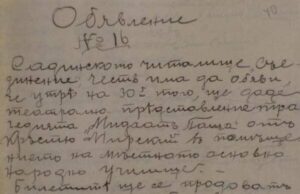 Обявление
№ 16
40
Сладинското читалище „Сѫе-
динение честь има да обяви,
че утрѣ на 30й того, ще даде
театрално прѣдставление тра-
гедията „Мидаатъ Паша" отъ
Кръстю Мирски въ помѣще-
нието на мѣстното основно
народно училище.
Билетитѣ ще се продаватъ